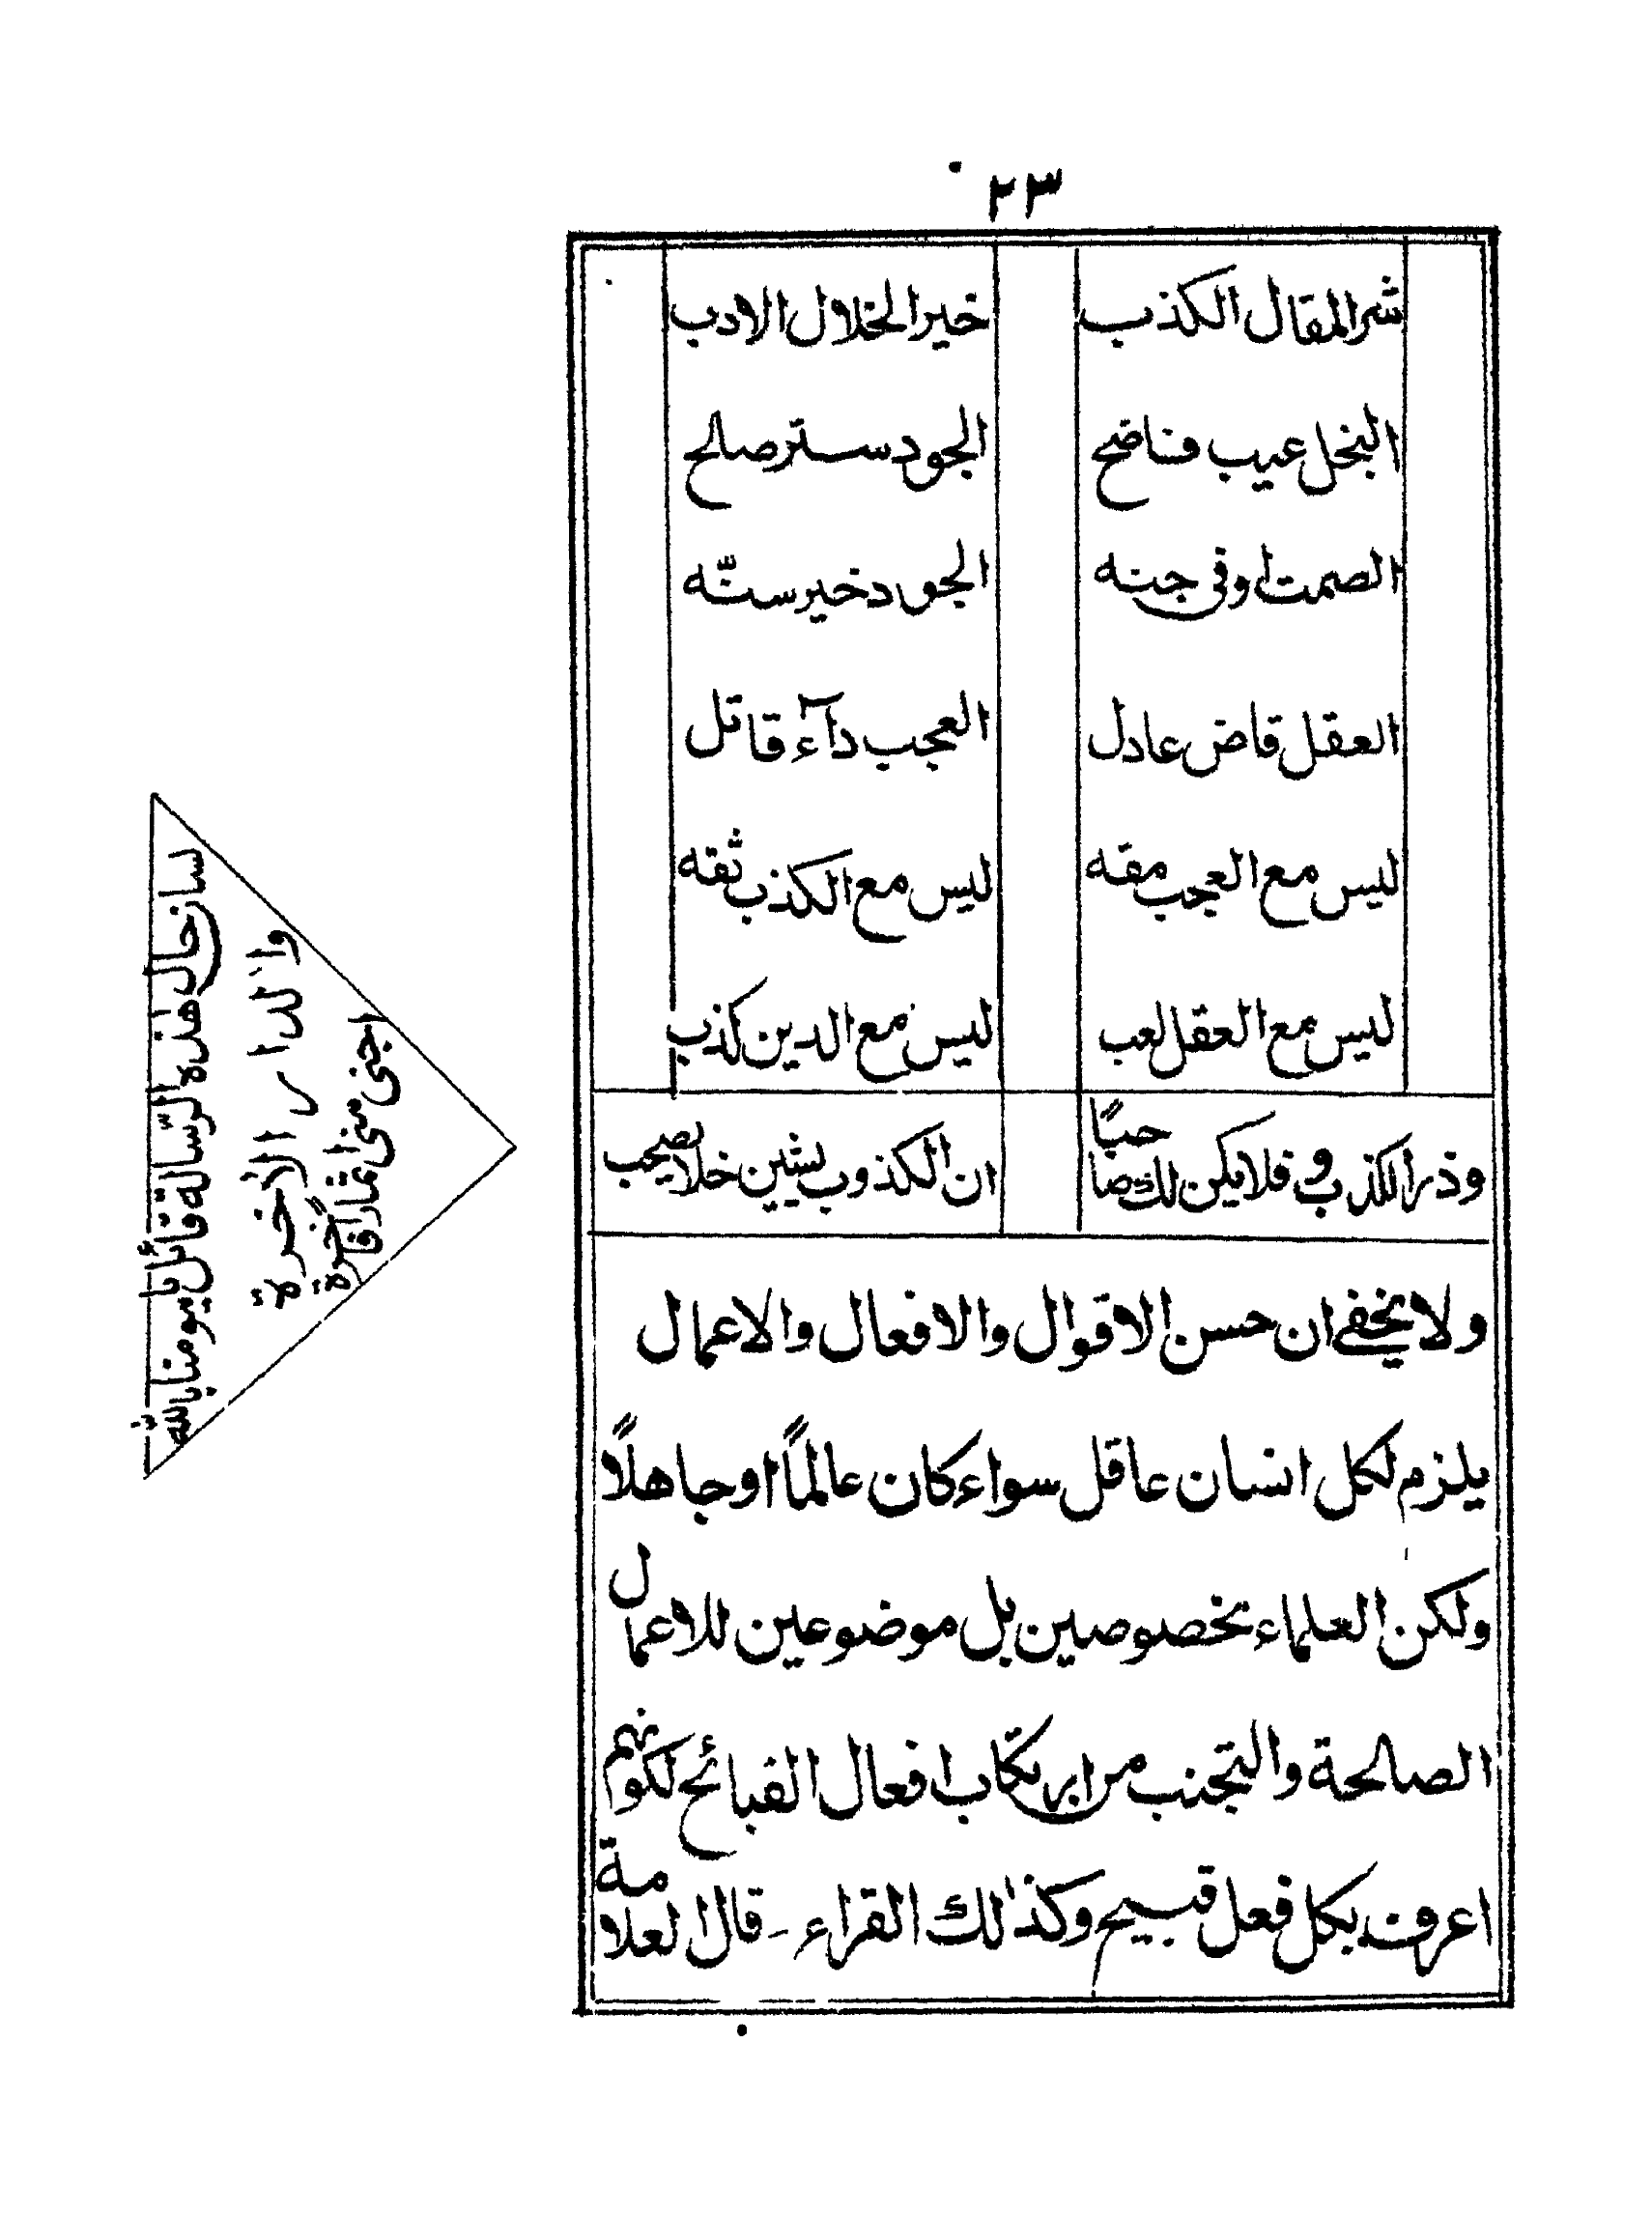 ٢٣
شر المقال الكذب خير الخلال الادب
البخل عيب فاضح الجود ستر صالح
الصمت اوفى جنه الجود خير سنّه
العقل قاض عادل العجب دآء قاتل
ليس مع العجب مقه ليس مع الكذب ثقه
ليس مع العقل لعب ليس مع الدين كذب
وذر الكذوب فلا يكن لك صاحبًا ان الكذوب يشين خلا يصحب
ولا يخفى ان حسن الاقوال والافعال والاعمال
يلزم لكل انسان عاقل سواء كان عالمًا او جاهلًا
ولكن العلماء مخصوصين بل موضوعين للاعمال
الصالحة والتجنب من ارتكاب افعال القبائح لكونهم
اعرف بكل فعل قبيح وكذٰلك القراء - قال العلامة
لسان حال هٰذه الرّسالة قائل يا مومنا بالله
والدار الاٰخرة
اجنى منى اثمارًا فاخرة